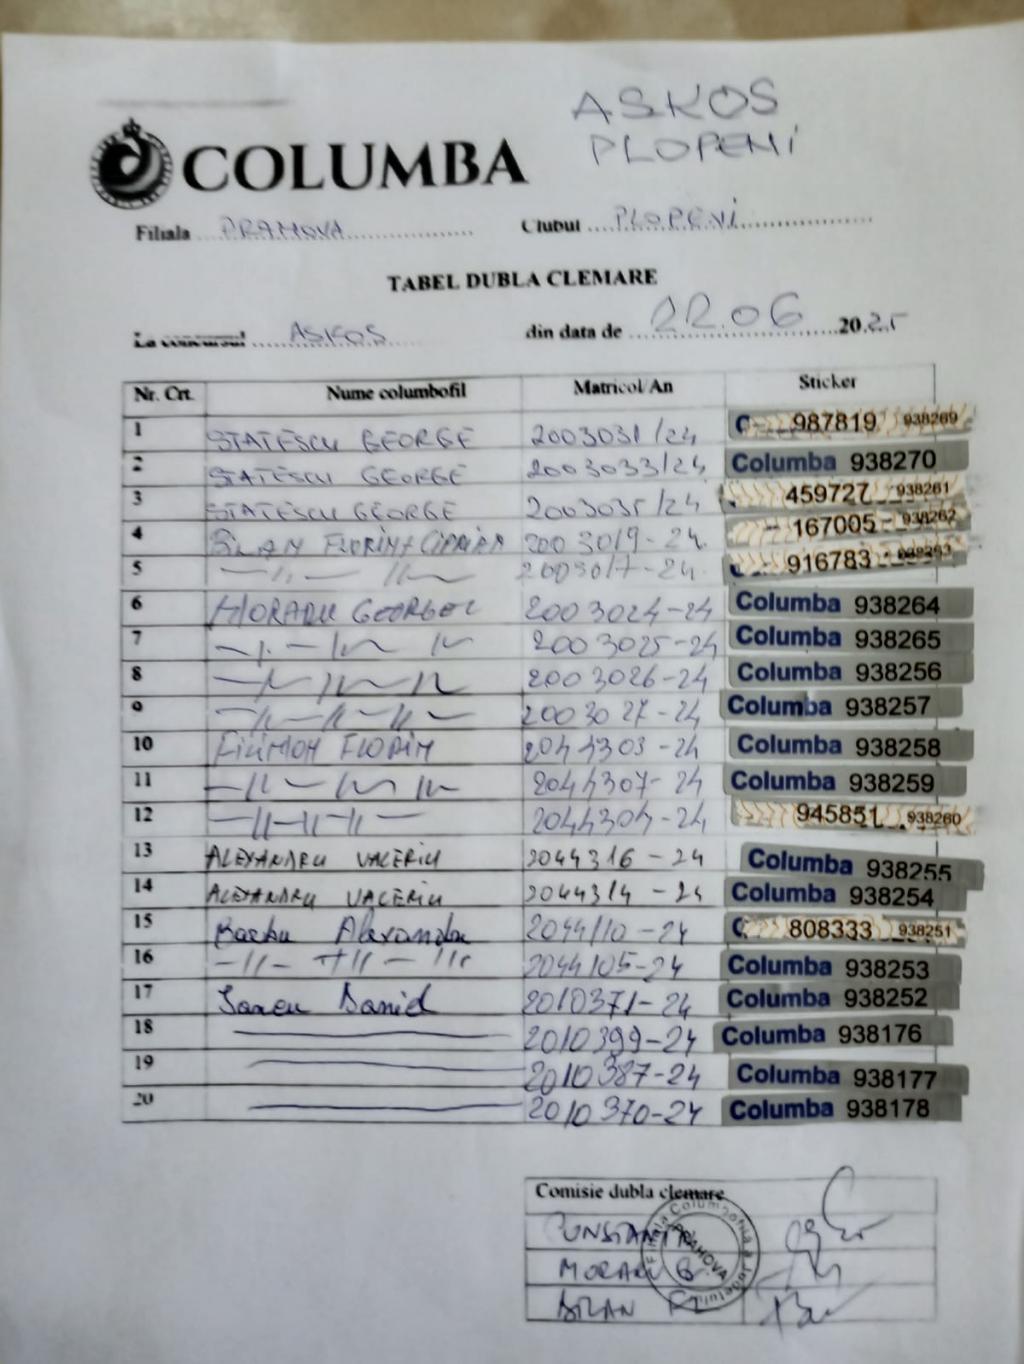 ASKOS
PLOPENI
COLUMBA
Filiala PRAHOVA Clubul PLOPENI
TABEL DUBLA CLEMARE
La concursul ASKOS din data de 22.06 2025
Nr. Crt. Nume columbofil Matricol/An Sticker
1 STATESCU GEORGE 2003031/24 C 987819 938269
2 STATESCU GEORGE 2003033/24 Columba 938270
3 STATESCU GEORGE 2003035/24 459727 938261
4 BILAN FLORIN+CIPRIAN 2003019-24 167005 938262
5 —〃— 〃— 2003017-24 916783 938263
6 MORARU GEORGEL 2003024-24 Columba 938264
7 2003025-24 Columba 938265
8 2003026-24 Columba 938256
9 —〃—〃—〃— 2003027-24 Columba 938257
10 FILIMON FLORIN 2044303-24 Columba 938258
11 —〃—〃—〃— 2044307-24 Columba 938259
12 —〃—〃—〃— 2044304-24 945851 938260
13 ALEXANDRU VALERIU 2044316-24 Columba 938255
14 ALEXANDRU VALERIU 2044314-24 Columba 938254
15 Barbu Alexandru 2044110-24 C 808333 938251
16 —〃—〃—〃 2044105-24 Columba 938253
17 2010371-24 Columba 938252
18 — 2010399-24 Columba 938176
19 — 2010387-24 Columba 938177
20 — 2010370-24 Columba 938178
Comisie dubla clemare
CONSTANTIN
MORARU G
BILAN FL
Filiala Columbofila a Judetului PRAHOVA